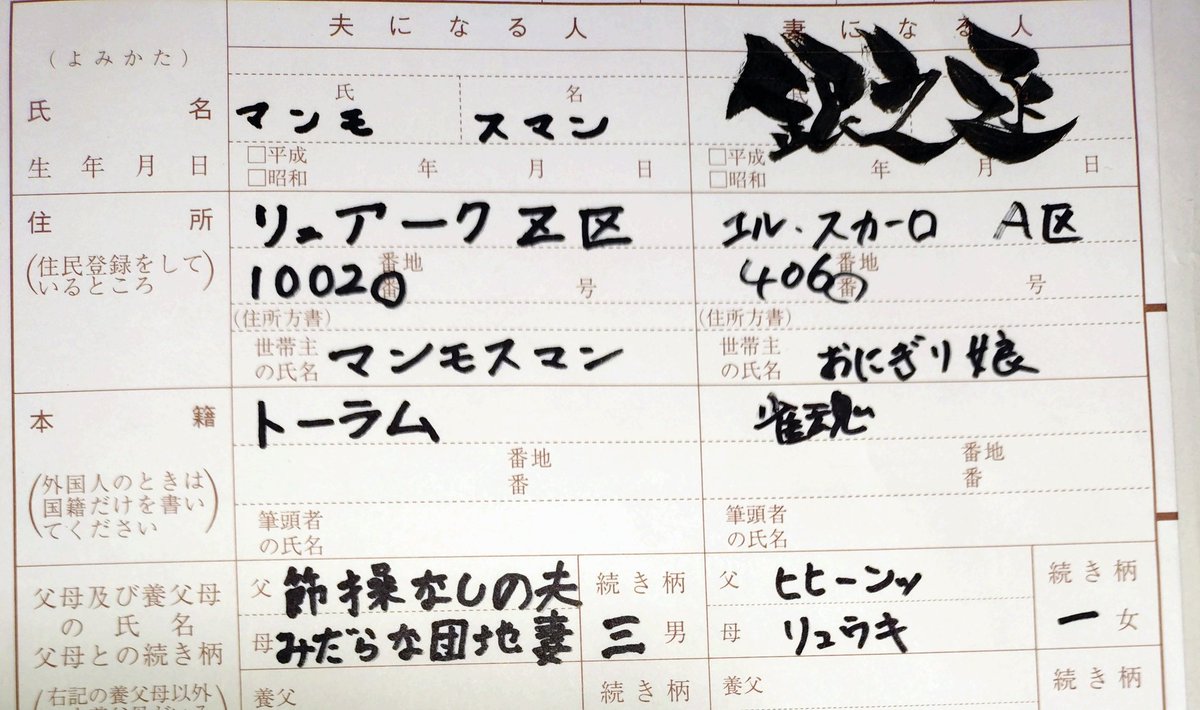 夫になる人 妻になる人
(よみかた)
氏 名 氏 マンモ 名 スマン 銀之丞
生年月日 □平成 □昭和 年 月 日 □平成 □昭和 年 日
住所 リュアークZ区 エル・スカーロ A区
(住民登録をしているところ) 10020 番地 番 号 406 番地 番 号
(住所方書) (住所方書)
世帯主の氏名 マンモスマン 世帯主の氏名 おにぎり娘
本籍 トーラム 雀魂
番地 番 番地 番
(外国人のときは国籍だけを書いてください)
筆頭者の氏名 筆頭者の氏名
父母及び養父母の氏名 父母との続き柄 父 節操なしの夫 続き柄 父 ヒヒーンッ 続き柄
母 みだらな団地妻 三男 母 リュウキ 一女
(右記の養父母以外 養父 続き柄 養父 続き柄